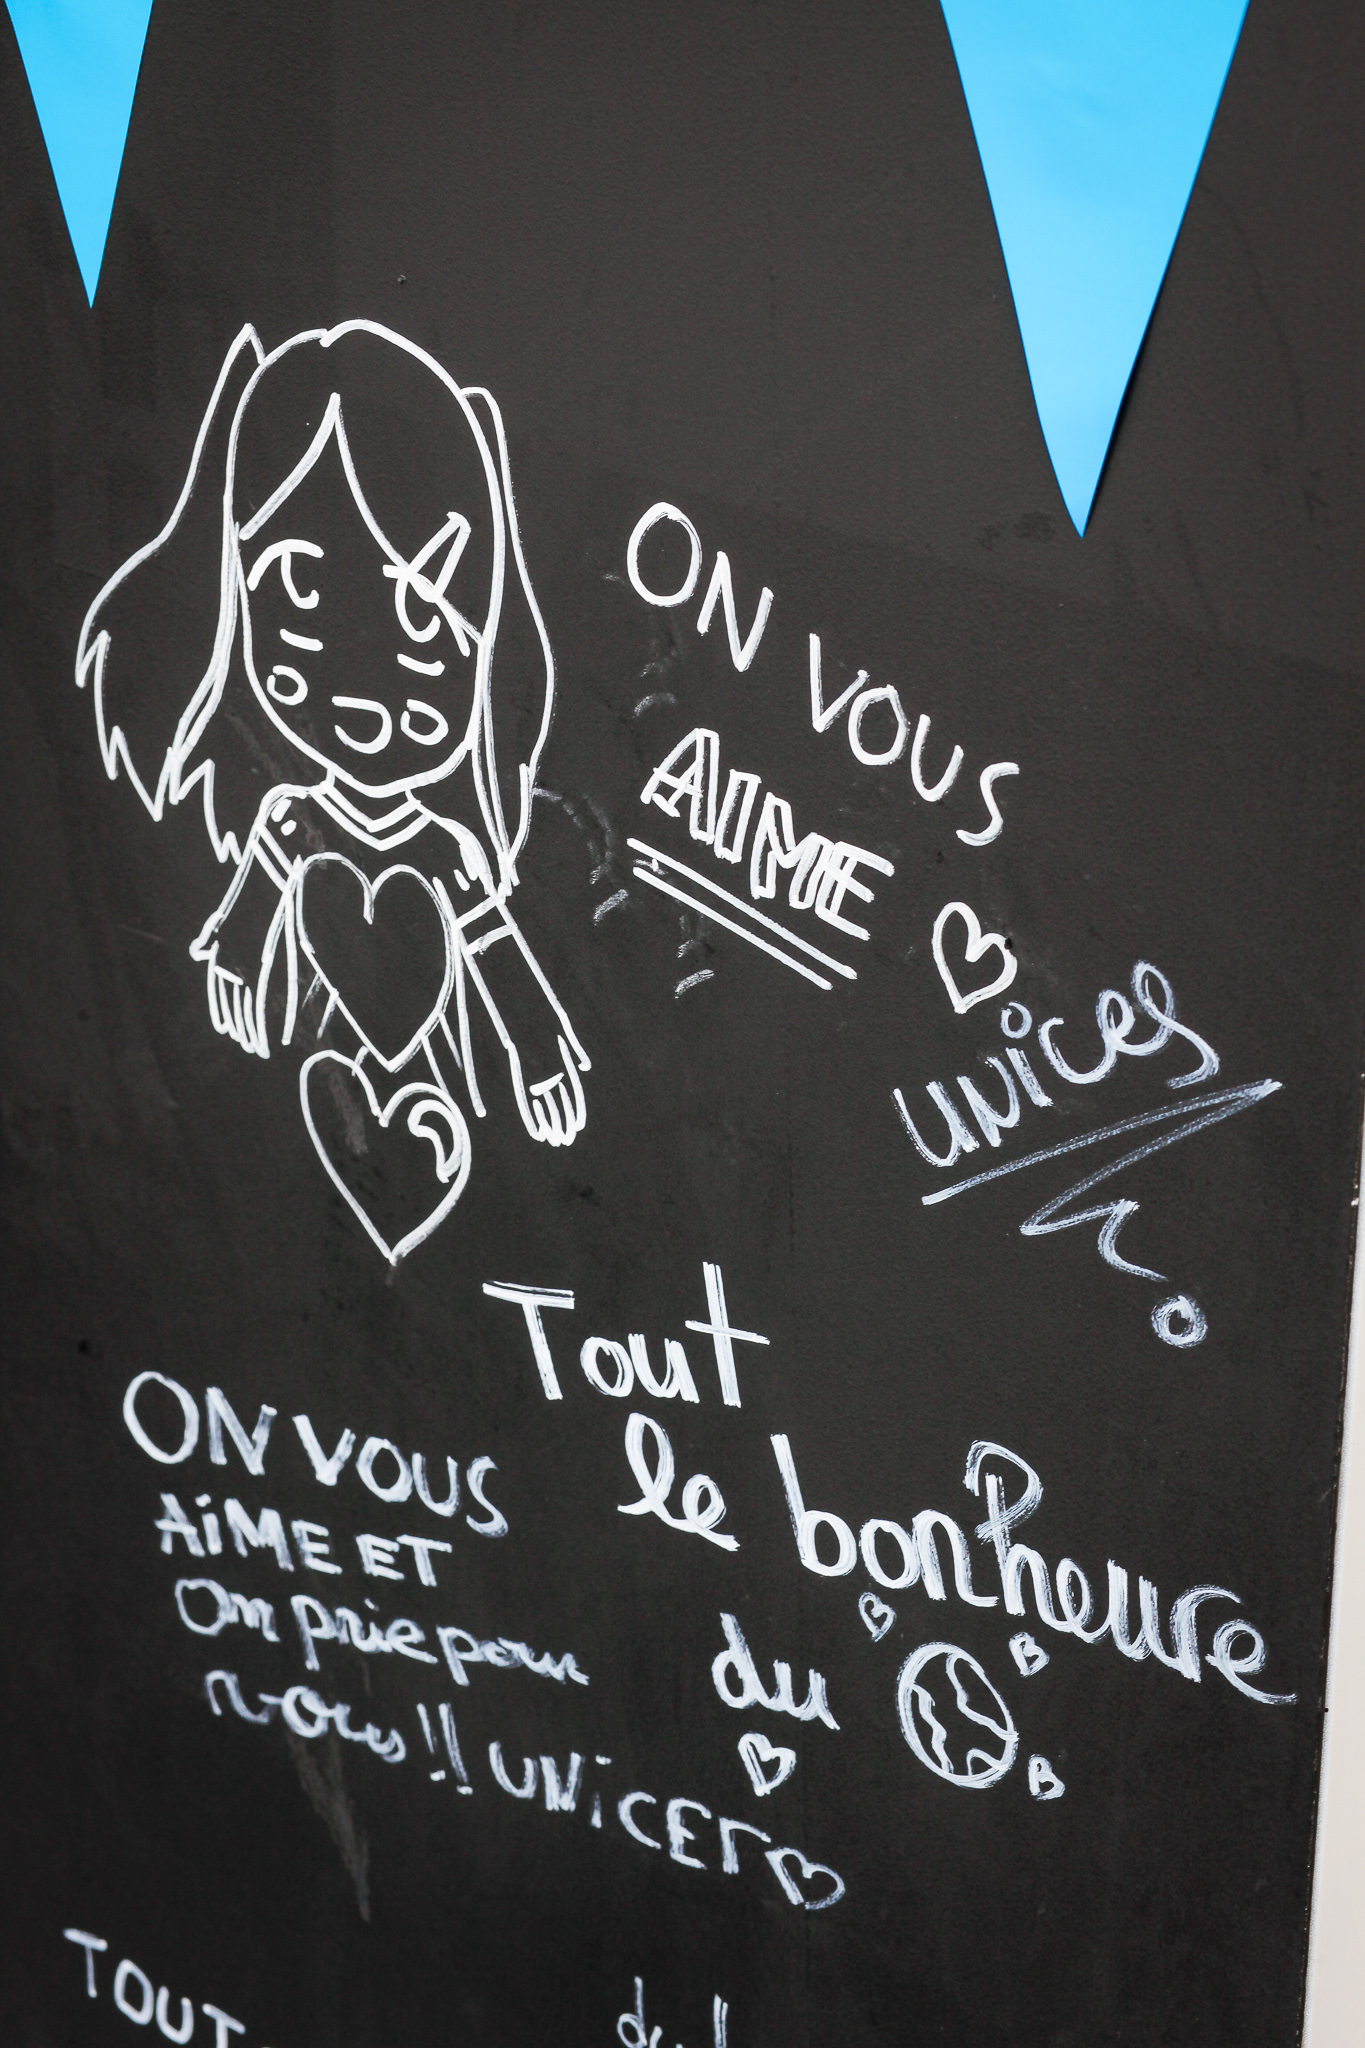 ON VOUS
AIME
UNiCeS
Tout
le bonheure
du
ON VOUS
AiME ET
On prie pour
vous !! UNiCEF
TOUT